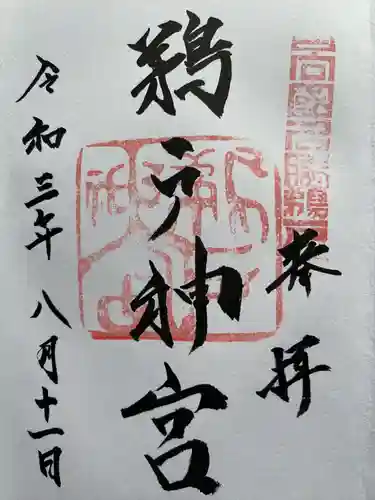 奉拝
鵜戸神宮
令和三年八月十一日